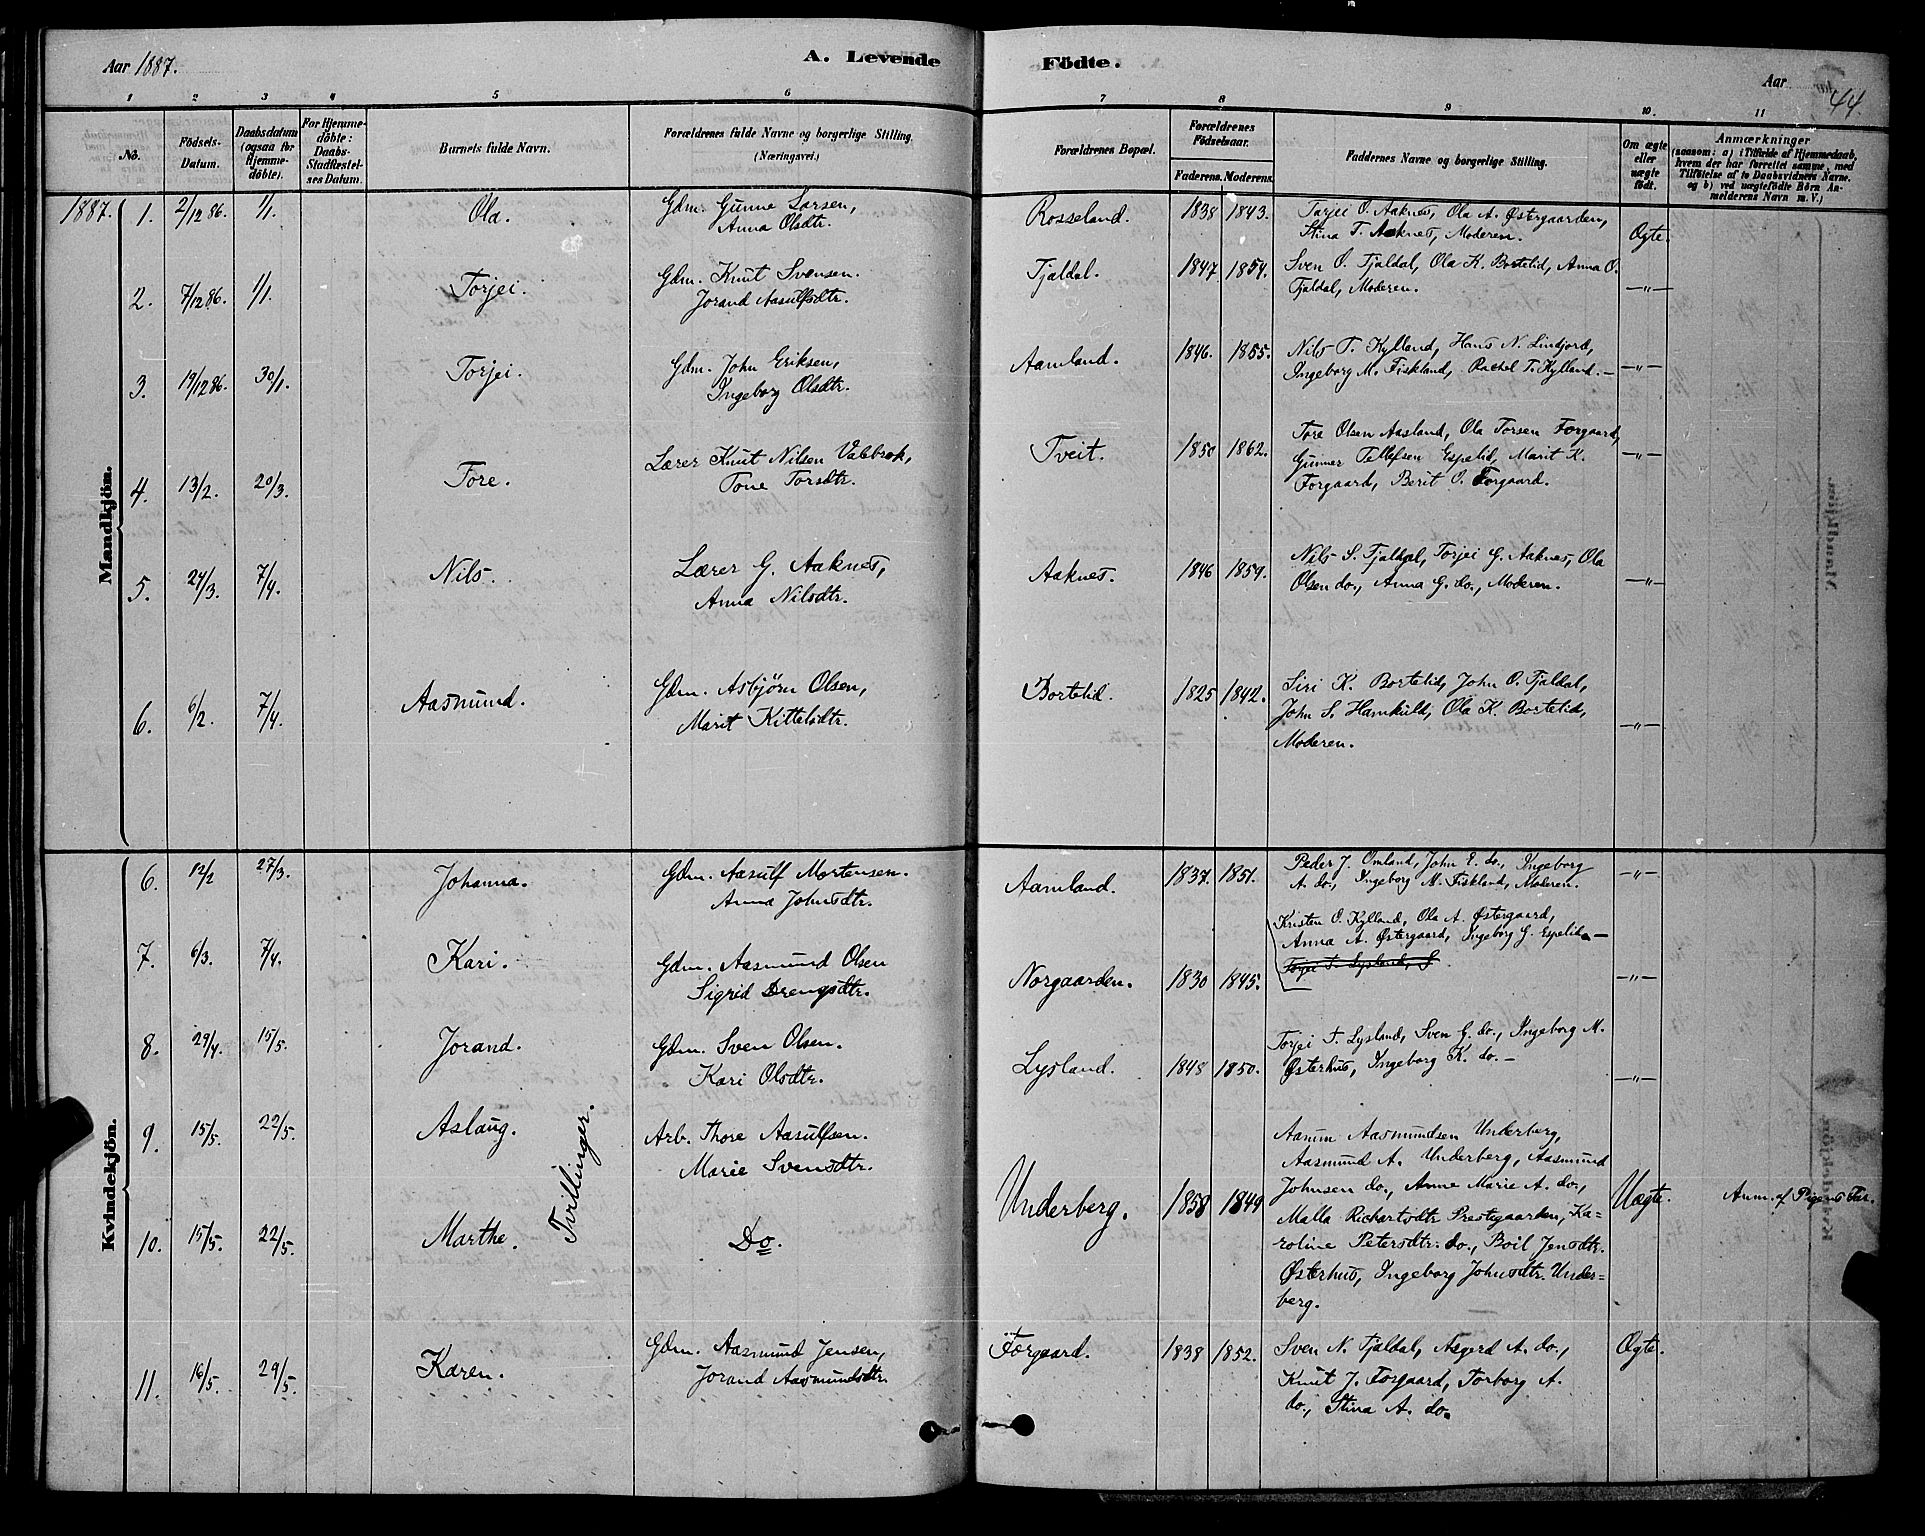 Aar 1887.
A. Levende Födte.
Aar
44.
1 2 3 4 5 6 7 8 9 10. 11
No.
Födsels-Datum.
Daabsdatum (ogsaa for Hjemme-döbte).
For Hjemme-döbte: Daabs-Stadfæstel-ses Datum.
Barnets fulde Navn.
Forældrenes fulde Navne og borgerlige Stilling.
(Næringsvei.)
Forældrenes Bopæl.
Forældrenes Födselsaar.
Faderens. Moderens.
Faddernes Navne og borgerlige Stilling.
Om ægte eller uægte födt.
Anmærkninger
(saasom: a) i Tilfælde af Hjemmedaab, hvem der har forrettet samme, med Tilföielse af to Daabsvidners Navne. og b) ved uægtefödte Börn Anmelderens Navn m. V.)
Mandkjön.
1887. 1. 2/12 86. 1/1. Ola. Gdm. Gunne Larsen, Rosseland. 1838 1843. Tarjei O. Aaknes, Ola A. Østergaarden,
Anna Olsdtr. Stina T. Aaknes, Moderen. Ægte.
2. 7/12 86. 1/1. Torjei. Gdm. Knut Svensen. Tjaldal. 1847 1854. Sven O. Tjaldal, Ola K. Bortelid, Anna O.
Jorand Aasulfsdtr. Tjaldal, Moderen. —"—
3. 19/12 86. 30/1. Torjei. Gdm. John Eriksen, Aamland. 1846. 1855. Nils T. Kylland, Hans N. Lindjord,
Ingeborg Olsdtr. Ingeborg M. Fiskland, Rachel T. Kylland. — —"—
4. 13/2. 20/3. Tore. Lærer Knut Nilsen Valebrok, Tveit. 1850 1862. Tore Olsen Aasland, Ola Torsen Forgaard,
Tone Torsdtr. Gunner Tellefsen Espelid, Marit K. —"—
Forgaard, Berit O. Forgaard.
5. 24/3. 7/4. Nils. Lærer G. Aaknes, Aaknes. 1846 1859. Nils S. Tjaldal, Torjei G. Aaknes, Ola
Anna Nilsdtr. Olsen do., Anna G. do., Moderen. —"—
6. 6/2. 7/4. Aasmund. Gdm. Asbjørn Olsen, Bortelid. 1825 1842. Siri K. Bortelid, John O. Tjaldal,
Marit Kittelsdtr. John S. Hamkuld, Ola K. Bortelid, —"—
Moderen.
Kvindekjön.
6. 12/2 27/3. Johanna. Gdm. Aasulf Mortensen. Aamland. 1837. 1851. Peder J. Omland, John E. do., Ingeborg
Anna Johnsdtr. A. do., Ingeborg M. Fiskland, Moderen. —"—
7. 6/3. 7/4. Kari. Gdm. Aasmund Olsen Norgaarden. 1830 1845. Kristen O. Kylland, Ola A. Østergaard,
Sigrid Drengsdtr. Anna A. Østergaard, Ingeborg G. Espelid. —
Torjei T. Lysland, S —"—
8. 29/4. 15/5. Jorand. Gdm. Sven Olsen. Lysland. 1848 1850. Torjei T. Lysland, Sven G. do., Ingeborg M.
Kari Olsdtr. Østerhus, Ingeborg K. do. — —"—
9. 15/5. 22/5. Aslaug. Arb. Thore Aasulfsen. Underberg. 1858 1849 Aanun Aasmundsen Underberg,
Marie Svensdtr. Aasmund A. Underberg, Aasmund
Tvillinger. Johnsen do., Anne Marie A. do., Uægte. Anm. af Pigens Far.
10. 15/5. 22/5. Marthe. Do. Malla Richartsdtr Prestegaarden, Ka=
roline Petersdtr. do., Boil Jensdtr.
Østerhus, Ingeborg Johnsdtr. Under=
berg.
11. 16/5. 29/5. Karen. Gdm. Aasmund Jensen, Forgaard. 1838 1852. Sven N. Tjaldal, Asgerd A. do., Ægte.
Jorand Aasmundsdtr. Knut J. Forgaard, Torborg A.
do., Stina A. do.